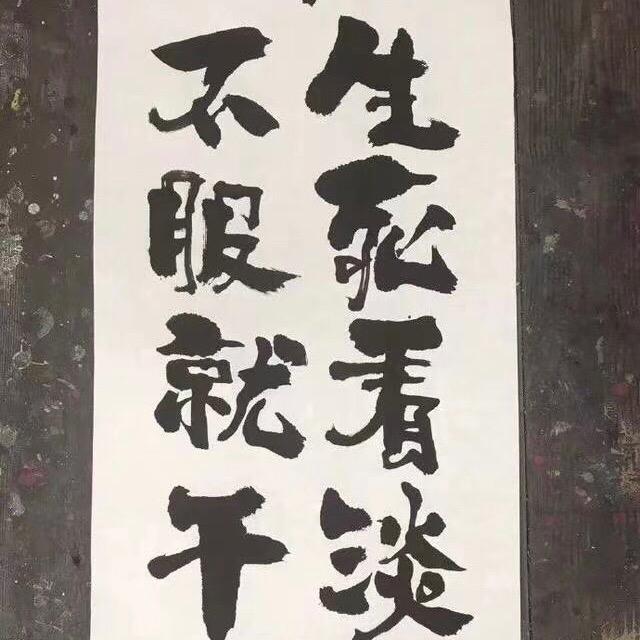 生死看淡
不服就干